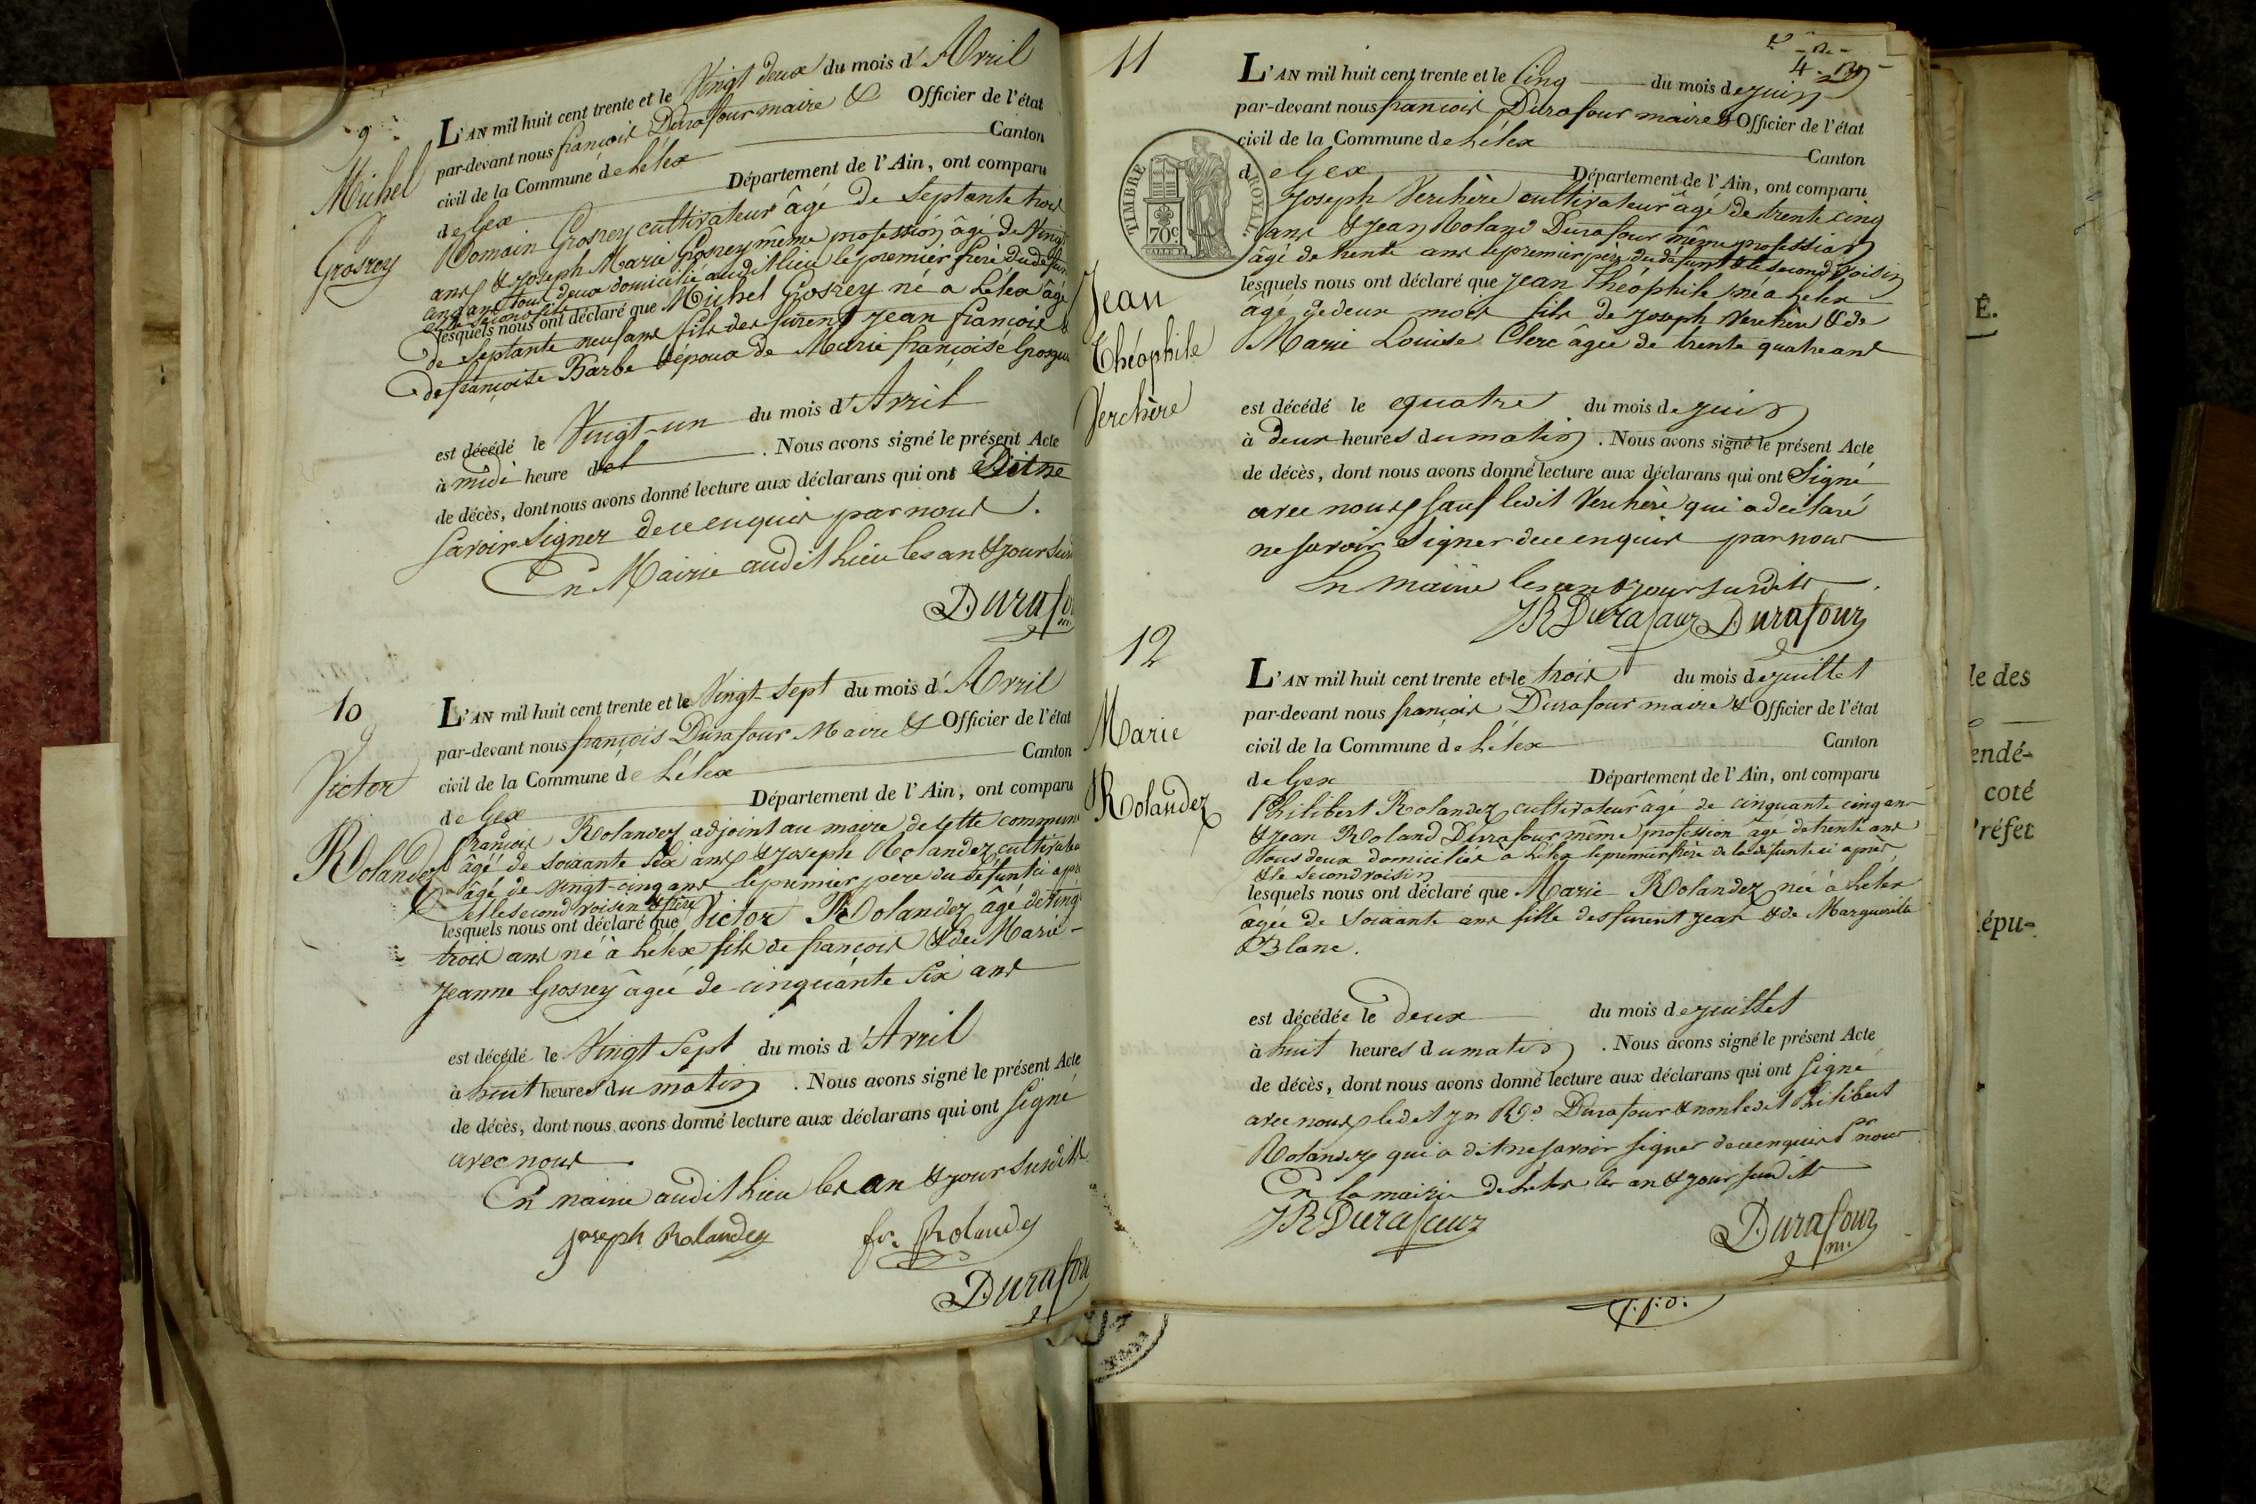 9
Michel
Grosrey
L'AN mil huit cent trente et le Vingt deux du mois d'Avril
par-devant nous françois Durafour maire & Officier de l'état
civil de la Commune de Lélex Canton
de Gex Département de l'Ain, ont comparu
Romain Grosrey cultivateur âgé de Septante trois
ans & Joseph Marie Grosrey même profession âgé de Vingt
ans tous deux domicilié audit lieu le premier frère du défunt
et le second fils
lesquels nous ont déclaré que Michel Grosrey né a Lélex âgé
de Septante neuf ans fils des furent Jean françois &
de françoise Barbe & époux de Marie françoise Grosgu
est décédé le Vingt-un du mois d'Avril
à midi heure d . Nous avons signé le présent Acte
de décès, dont nous avons donné lecture aux déclarans qui ont Dit ne
Savoir Signer de ce enquis par nous.
En Mairie audit Lieu les an & jour Sus
Durafo
10
Victor
Rolandez
L'AN mil huit cent trente et le Vingt-Sept du mois d'Avril
par-devant nous françois Durafour Maire & Officier de l'état
civil de la Commune de Lélex Canton
de Gex Département de l'Ain, ont comparu
françois Rolandez adjoint au maire de cette commune
âgé de soixante Six ans & Joseph Rolandez cultivate
âgé de Vingt-cinq ans le premier père du défunt ci apr
et le second voisin & frère
lesquels nous ont déclaré que Victor Rolandez âgé de Vingt
trois ans né à Lélex fils de françois & de Marie-
Jeanne Grosrey âgée de cinquante Six ans
est décédé le Vingt Sept du mois d'Avril
à huit heures du matin . Nous avons signé le présent Acte
de décès, dont nous avons donné lecture aux déclarans qui ont Signé
avec nous
En mairie audit Lieu les an & jour Susdits
Joseph Rolandez fs. Rolandez
Durafou
4.
11
Jean
Théophile
Verchère
L'AN mil huit cent trente et le Cinq du mois de juin
par-devant nous françois Durafour maire & Officier de l'état
civil de la Commune de Lélex Canton
TIMBRE ROYAL
70c
de Gex Département de l'Ain, ont comparu
Joseph Verchère cultivateur âgé de trente cinq
ans & Jean Roland Durafour même profession
âgé de trente ans le premier père du défunt & le second Voisin
lesquels nous ont déclaré que Jean Théophile né a Lelex
âgé de deux mois fils de Joseph Verchère & de
Marie Louise Clerc âgée de trente quatre ans
est décédé le quatre du mois de juin
à deux heures du matin . Nous avons signé le présent Acte
de décès, dont nous avons donné lecture aux déclarans qui ont Signé
avec nous sauf ledit Verchère qui a déclaré
ne savoir Signer de ce enquis par nous
En mairie les an & jour susdits.
JRDurafour Durafour
12
Marie
Rolandez
L'AN mil huit cent trente et le trois du mois de juillet
par-devant nous françois Durafour maire & Officier de l'état
civil de la Commune de Lélex Canton
de Gex Département de l'Ain, ont comparu
Philibert Rolandez cultivateur âgé de cinquante cinq ans
& Jean Roland Durafour même profession âgé de trente ans
tous deux domiciliés à Lélex le premier frère de la défunte ci après
& le second voisin
lesquels nous ont déclaré que Marie Rolandez née à Lelex
âgée de Soixante ans fille des furent Jean & de Marguerite
Blanc.
est décédée le deux du mois de juillet
à huit heures du matin . Nous avons signé le présent Acte
de décès, dont nous avons donné lecture aux déclarans qui ont Signé
avec nous ledit Jn Rd. Durafour & non ledit Philibert
Rolandez qui a dit ne savoir signer de ce enquis pr nous
En la mairie de Lelex les an & jour susdits
JRDurafour
Durafour
m.
É.
le des
endé-
coté
réfet
épu-